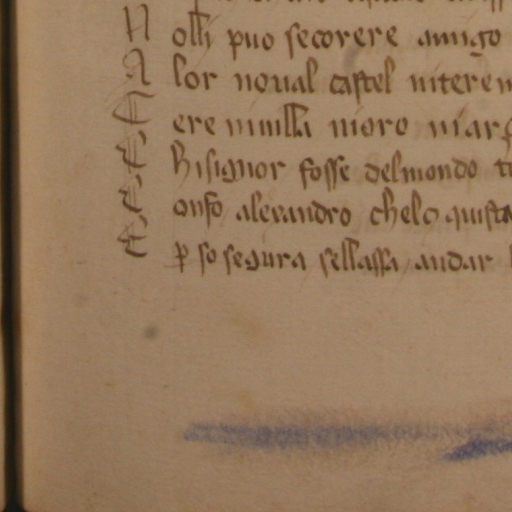 N olli puo secorere amigo
A lor noval castel niteren
E ere ninilla moro mar
E hi signor fosse del mondo t
E onfo alexandro chelo quista
E p so segura sellassa andar